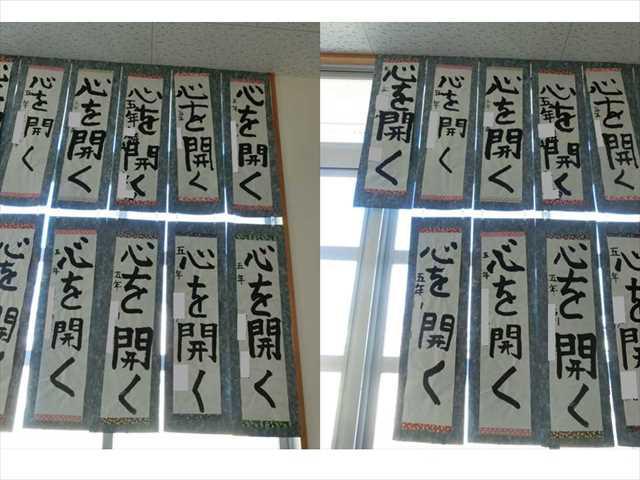 心を開く
五年
心を開く
心を開く
五年
心を開く
心を開く
心を開く
心を開く
五年
心を開く
五年
心を開く
五年
心を開く
五年
心を開く
心を開く
心を開く
心を開く
五年
心を開く
心を開く
五年
心を開く
五年
心を開く
五年